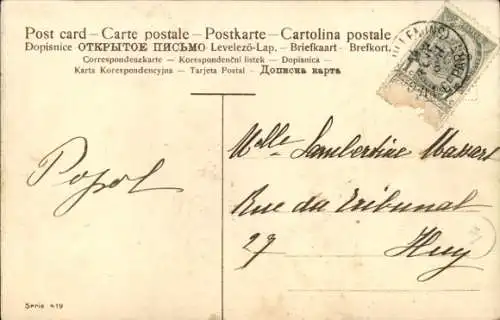 Post card – Carte postale – Postkarte – Cartolina postale
Dopisnice ОТКРЫТОЕ ПИСЬМО – Levelező-Lap. – Briefkaart – Brefkort.
Correspondenzkarte – Korespondenční listek – Dopisnica –
Karta Korespondencyjna – Tarjeta Postal – Дописна карта
Popol
Melle Lambertine Massart
Rue du Tribunal
27
Huy
Serie 419